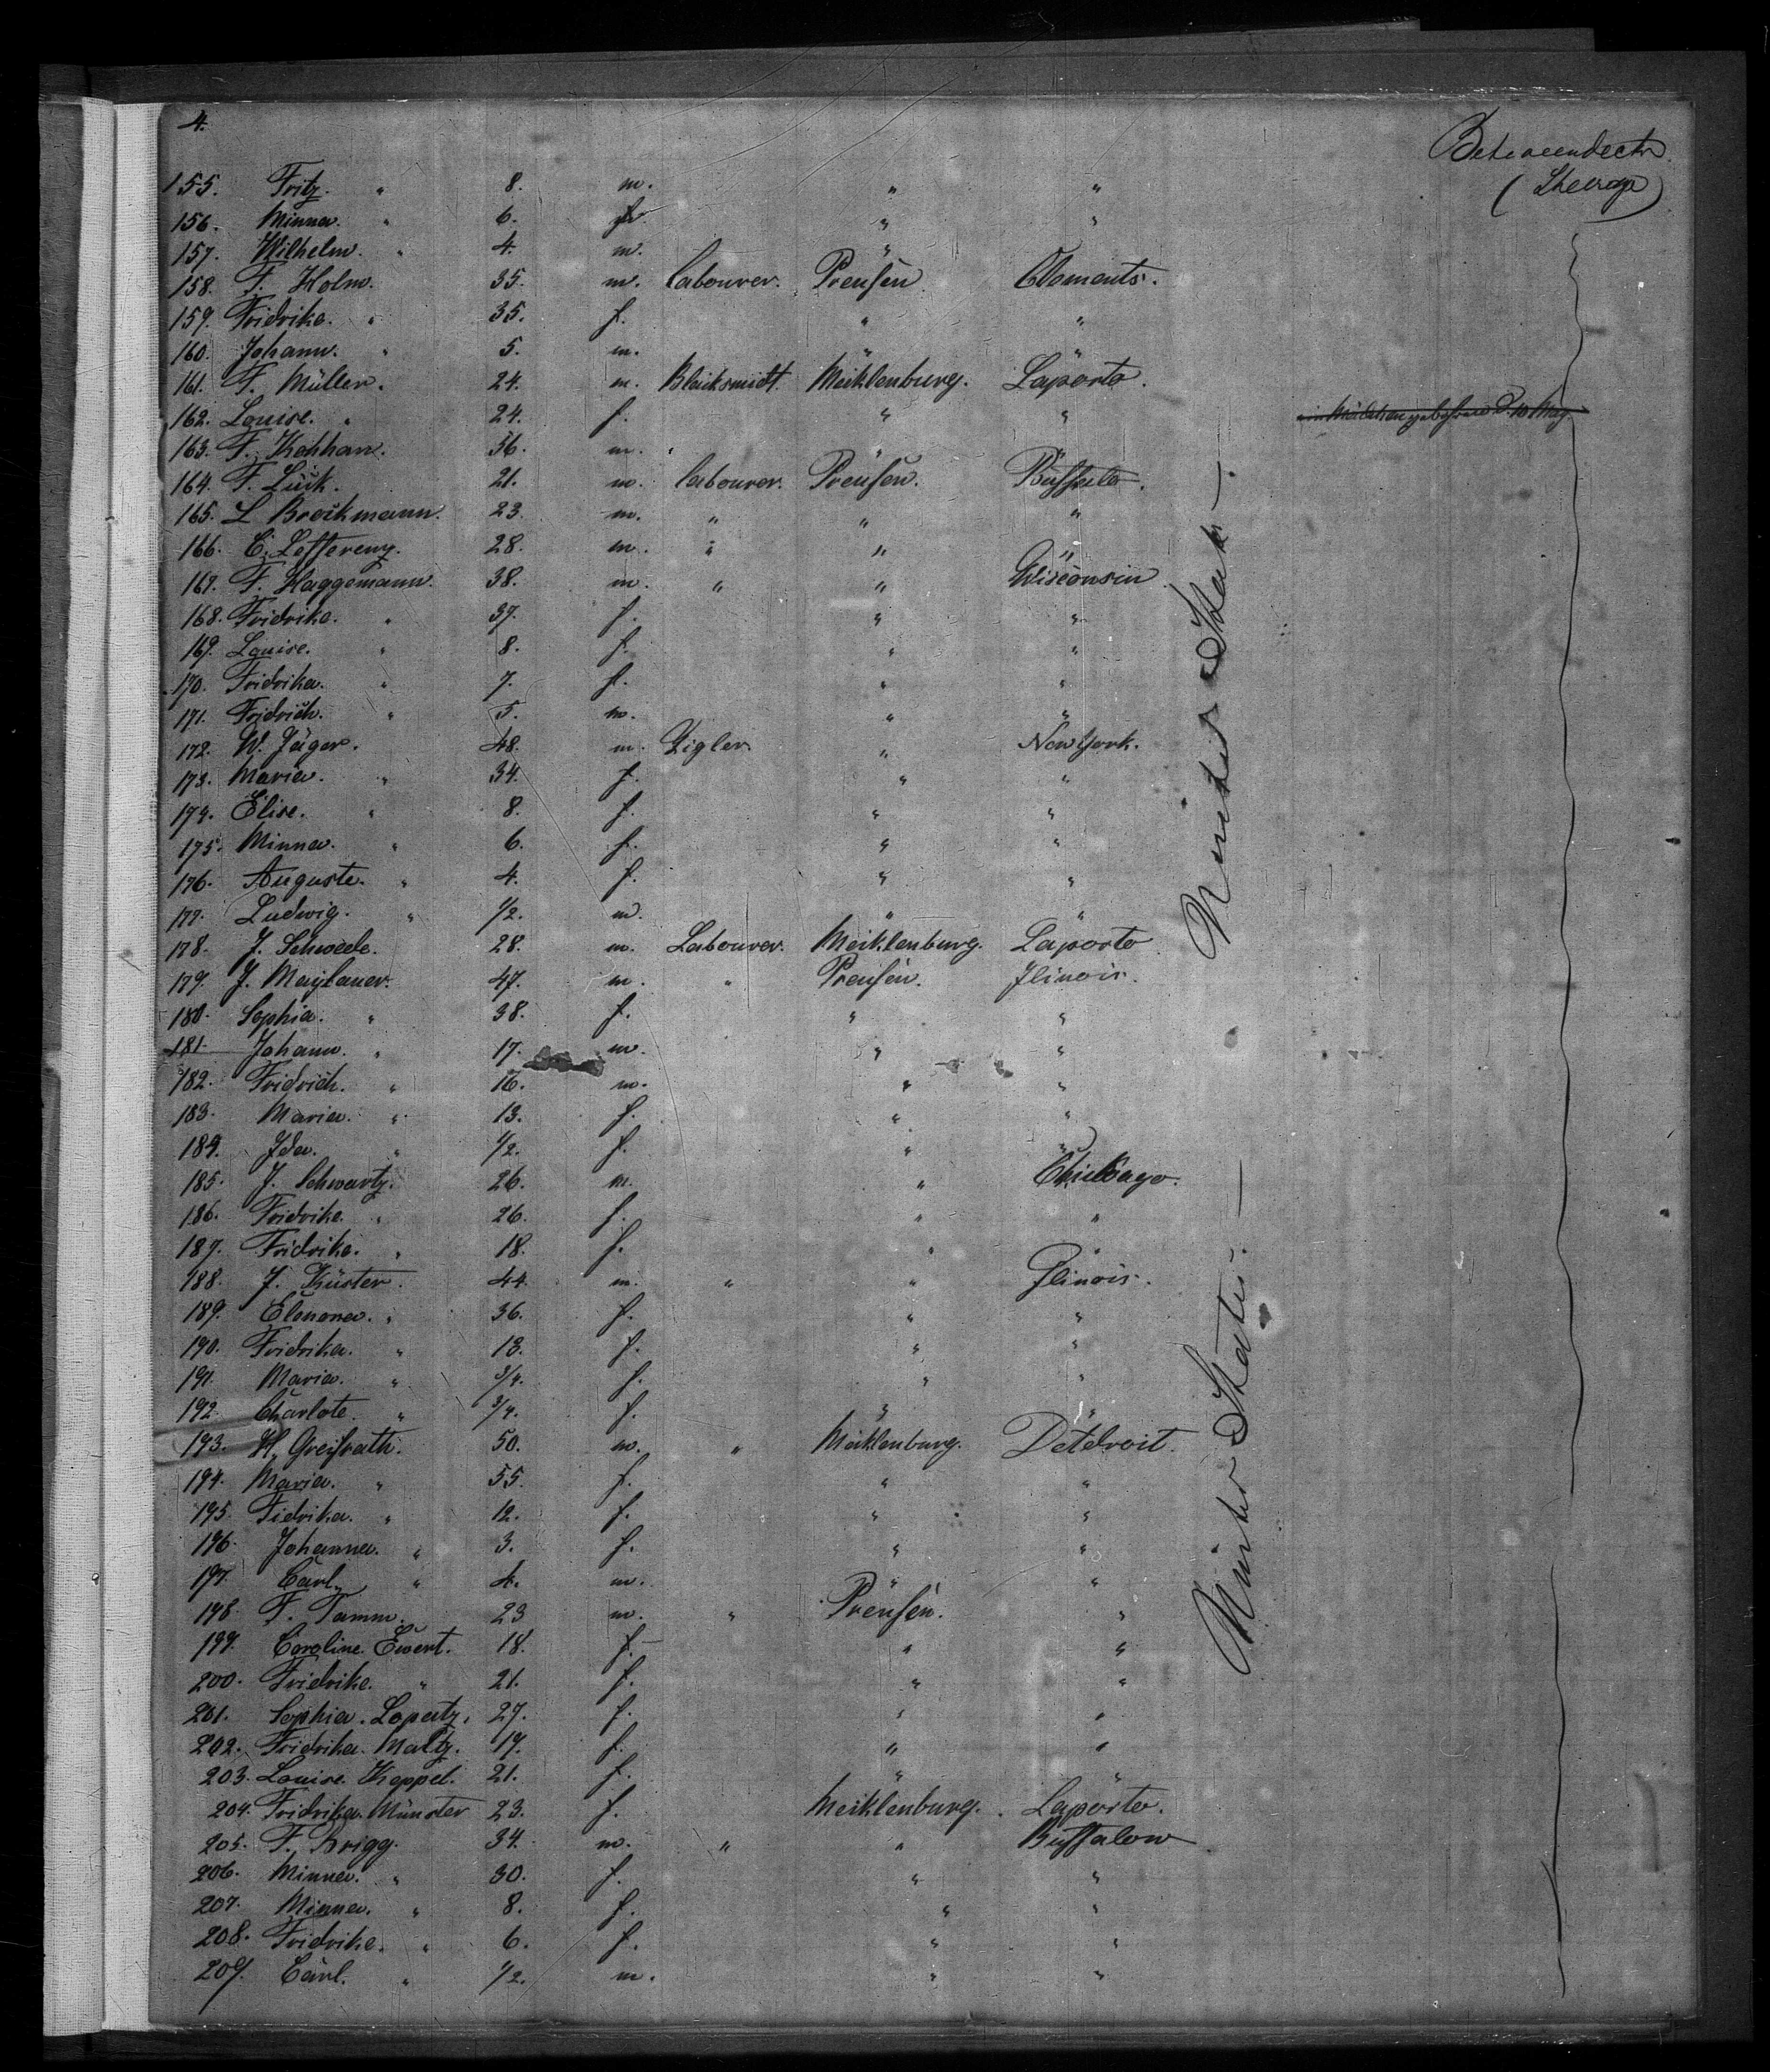 4.
Betweendecks
(Steerage)
155. Fritz. " 8. m. " "
156. Minna. " 6. f. " "
157. Wilhelm. " 4. m. "
158. F. Holm. 35. m. labourer. Preußen Clements.
159. Fridrike. " 35. f. " "
160. Johann. " 5. m. " "
161. F. Müller. 24. m. Blacksmidt. Mecklenburg. Laporto.
162. Louise. " 24. f. " "
163. F. 36. m.
164. F. Lück. 21. m. labourer. Preußen. Buffalo.
165. L Brockmann. 23. m. " " "
166. C. 28. m. " " "
167. F. Haggemann. 38. m. " " Wisconsin
168. Fridrike. " 37. f. " "
169. Louise. " 8. f. " "
170. Fridrika. " 7. f. " "
171. Fridrich. " 5. m. " "
172. W. Jäger. 48. m. Zigler. " New York.
173. Maria. " 34. f. " "
174. Elise. " 8. f. " "
175. Minna. " 6. f. " "
176. Auguste. " 4. f. " "
177. Ludwig. " 1/2. m. " "
178. J. Schwede. 28. m. Labourer. Mecklenburg. Laporto
179. J. 47. m. " Preußen. Jlinois.
180. Sophia. " 38. f. " "
181. Johann. " 17. m. " "
182. Fridrich. " 16. m. " "
183. Maria. " 13. f. " "
184. Ida. " 1/2. f. " "
185. J. Schwartz. 26. m. " Chickago.
186. Fridrike. " 26. f. " "
187. Fridrike. " 18. f. " "
188. J. Küster. 44. m. " " Jlinois.
189. Elonora. " 36. f. " "
190. Fridrika. " 13. f. " "
191. Maria. " 3/4. f. " "
192. Charlote. " 3/4. f. " "
193. H. Greifrath. 50. m. " Mecklenburg. Detdroit.
194. Maria. " 55. f. " "
195. Fidrika. " 12. f. " "
196. Johanna. " 3. f. " "
197. Carl. " 4. m. " "
198. F. Tamm. 23 m. " Preußen. "
199. Caroline Ewert. 18. f. " "
200. Fridrike. " 21. f. " "
201. Sophia. 27. f. " "
202. Fridrika. Maltz. 19. f. " "
203. Louise. Koppel. 21. f. " "
204. Fridrika. Münster 23. f. Mecklenburg. Laporto.
205. F. Krigg. 34. m. " " Buffalow
206. Minna. " 30. f. " "
207. Minna. " 8. f. " "
208. Fridrike. " 6. f. " "
209. Carl. " 1/2. m. " "
United States
United States